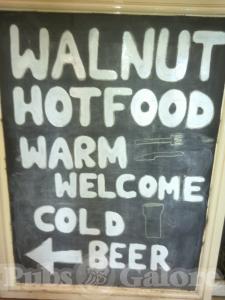 WALNUT
HOTFOOD
WARM
WELCOME
COLD
BEER
Pubs Galore